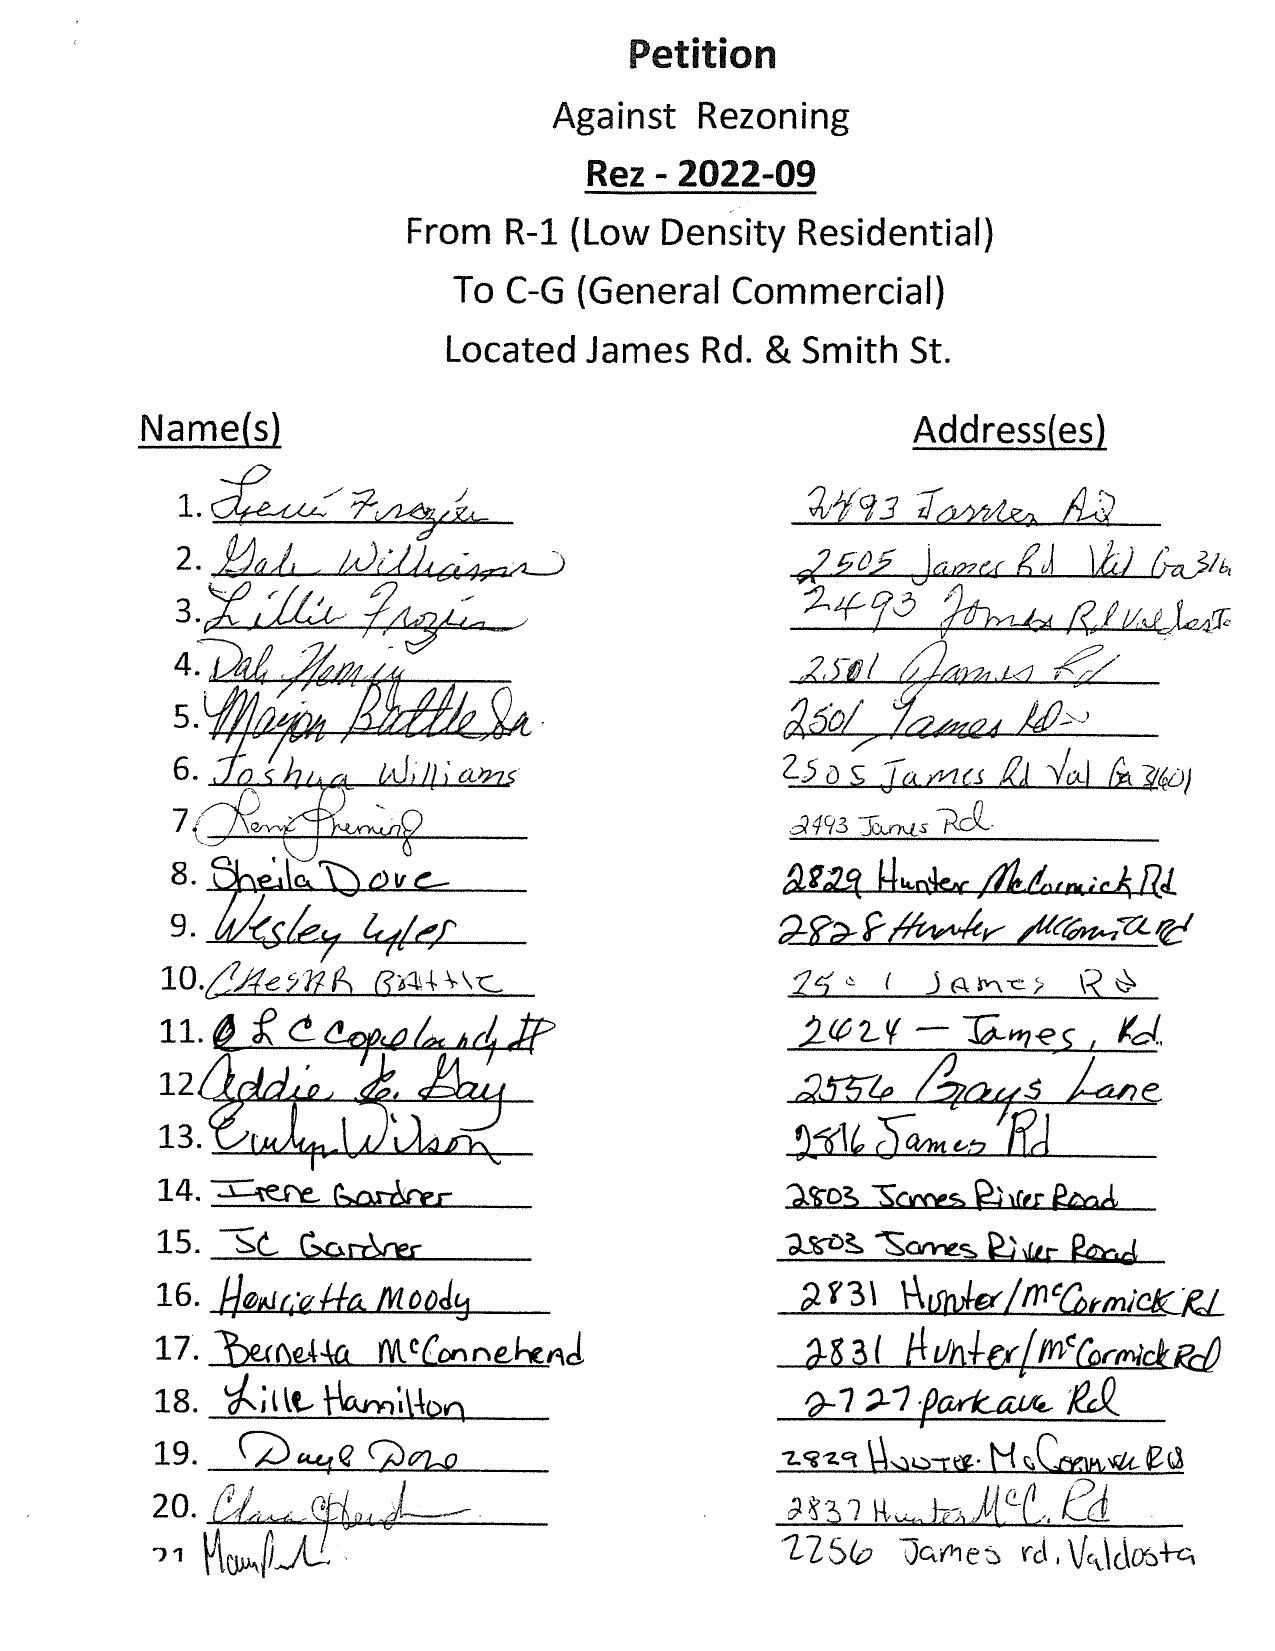 Petition
Against Rezoning
Rez - 2022-09
From R-1 (Low Density Residential)
To C-G (General Commercial)
Located James Rd. & Smith St.
Name(s) Address(es)
1. Frazier 2493 James Rd
2. Gale Williams 2505 James Rd Val Ga 316
3. Lillie Frazier 2493 James Rd Valdosta
4. Dale 2501 James Rd
5. Major Battle Sr. 2501 James Rd
6. Joshua Williams 2505 James Rd Val Ga 31601
7. 2493 James Rd.
8. Sheila Dove 2829 Hunter McCormick Rd
9. Wesley Lyles 2828 Hunter McCormick Rd
10. Battle 2501 James Rd
11. L C Copeland 2624 - James, Rd.
12. Addie B. Gay 2556 Grays Lane
13. Evelyn Wilson 2816 James Rd
14. Irene Gardner 2803 James River Road
15. JC Gardner 2803 James River Road
16. Henrietta Moody 2831 Hunter/McCormick Rd
17. Bernetta McConnehead 2831 Hunter/McCormick Rd
18. Lille Hamilton 2727 Park ave Rd
19. Dove 2829 McCormick Rd
20. Clara 2837 Hunter McC. Rd
21 2256 James rd. Valdosta